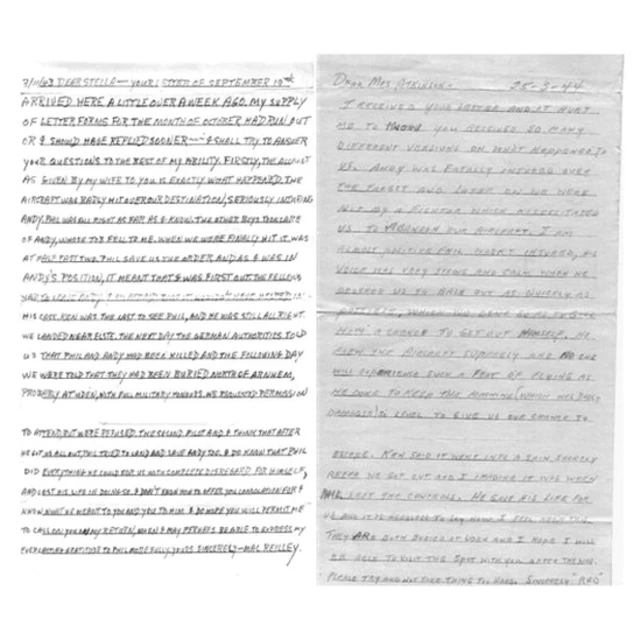 7/11/43 DEAR STELLA — YOUR LETTER OF SEPTEMBER 19th
ARRIVED HERE A LITTLE OVER A WEEK AGO. MY SUPPLY
OF LETTER FORMS FOR THE MONTH OF OCTOBER HAD RUN OUT
OR I SHOULD HAVE REPLIED SOONER — I SHALL TRY TO ANSWER
YOUR QUESTIONS TO THE BEST OF MY ABILITY. FIRSTLY, THE ACCOUNT
AS GIVEN BY MY WIFE TO YOU IS EXACTLY WHAT HAPPENED. THE
AIRCRAFT WAS BADLY HIT OVER OUR DESTINATION, SERIOUSLY INJURING
ANDY. PHIL WAS ALL RIGHT AS FAR AS I KNOW. THE OTHER BOYS TOOK CARE
OF ANDY, WHOSE JOB FELL TO ME. WHEN WE WERE FINALLY HIT IT WAS
AT HALF PAST TWO. PHIL GAVE US THE ORDER AND AS I WAS IN
ANDY'S POSITION, IT MEANT THAT I WAS FIRST OUT. THE FELLOWS
HIS CASE. KEN WAS THE LAST TO SEE PHIL, AND HE WAS STILL ALRIGHT.
WE LANDED NEAR ELSTE. THE NEXT DAY THE GERMAN AUTHORITIES TOLD
US THAT PHIL AND ANDY HAD BEEN KILLED AND THE FOLLOWING DAY
WE WERE TOLD THAT THEY HAD BEEN BURIED NORTH OF ARNHEM,
PROBABLY AT UDEN, WITH FULL MILITARY HONOURS. WE REQUESTED PERMISSION
TO ATTEND, BUT WERE REFUSED. THE SECOND PILOT AND I THINK THAT AFTER
HE GOT US ALL OUT, PHIL TRIED TO LAND AND SAVE ANDY TOO. I DO KNOW THAT PHIL
DID EVERYTHING HE COULD FOR US WITH COMPLETE DISREGARD FOR HIMSELF,
AND LOST HIS LIFE IN DOING SO. I DON'T KNOW HOW TO OFFER YOU CONSOLATION FOR I
KNOW WHAT HE MEANT TO YOU AND YOU TO HIM. I DO HOPE YOU WILL PERMIT ME
TO CALL ON YOU ON MY RETURN, WHEN I MAY PERHAPS BE ABLE TO EXPRESS MY
EVERLASTING GRATITUDE TO PHIL MORE FULLY. YOURS SINCERELY — MAC REILLEY.
DEAR MRS ATKINSON - 25-3-44
I RECEIVED YOUR LETTER AND IT HURT
ME TO KNOW YOU RECEIVED SO MANY
DIFFERENT VERSIONS ON WHAT HAPPENED TO
US. ANDY WAS FATALLY INJURED OVER
THE TARGET AND LATER ON WE WERE
HIT BY A FIGHTER WHICH NECESSITATED
US TO ABANDON OUR AIRCRAFT. I AM
ALMOST POSITIVE PHIL WASN'T INJURED, HIS
VOICE WAS VERY STRONG AND CALM WHEN HE
ORDERED US TO BALE OUT AS QUICKLY AS
POSSIBLE, WHICH WE DONE SO AS TO GIVE
HIM A CHANCE TO GET OUT HIMSELF. HE
FLEW THE AIRCRAFT SUPERBLY AND NO ONE
WILL EXPERIENCE SUCH A FEAT OF FLYING AS
HE DONE TO KEEP THE MACHINE (WHICH WAS BADLY
DAMAGED) LEVEL TO GIVE US OUR CHANCE TO
ESCAPE. KEN SAID IT WENT INTO A SPIN SHORTLY
AFTER WE GOT OUT AND I IMAGINE IT WAS WHEN
PHIL LEFT THE CONTROLS. HE GAVE HIS LIFE FOR
US AND IT IS NEEDLESS TO SAY HOW I FEEL ABOUT THIS.
THEY ARE BOTH BURIED AT UDEN AND I HOPE I WILL
BE ABLE TO VISIT THE SPOT WITH YOU AFTER THE WAR.
PLEASE TRY AND NOT TAKE THING TOO HARD. SINCERELY "RED"